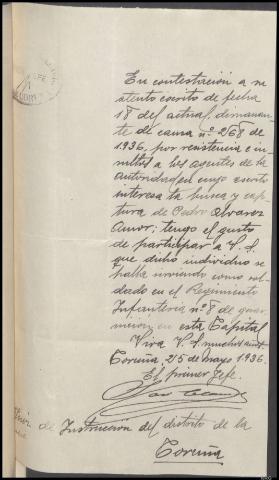 En contestación a su
atento escrito de fecha
18 del actual, dimanan-
te de causa nº 268 de
1936, por resistencia e in-
sultos a los agentes de la
autoridad, en cuyo escrito
interesa la busca y cap-
tura de Pedro Alvarez
Amor, tengo el gusto
de participar a V. S.
que dicho individuo se
halla sirviendo como sol-
dado en el Regimiento
Infantería nº 8 de guar-
nición en esta Capital
Viva V. S. muchos años
Coruña, 25 de Mayo 1936.
El primer Jefe.
de Instrucción del distrito de la
Coruña